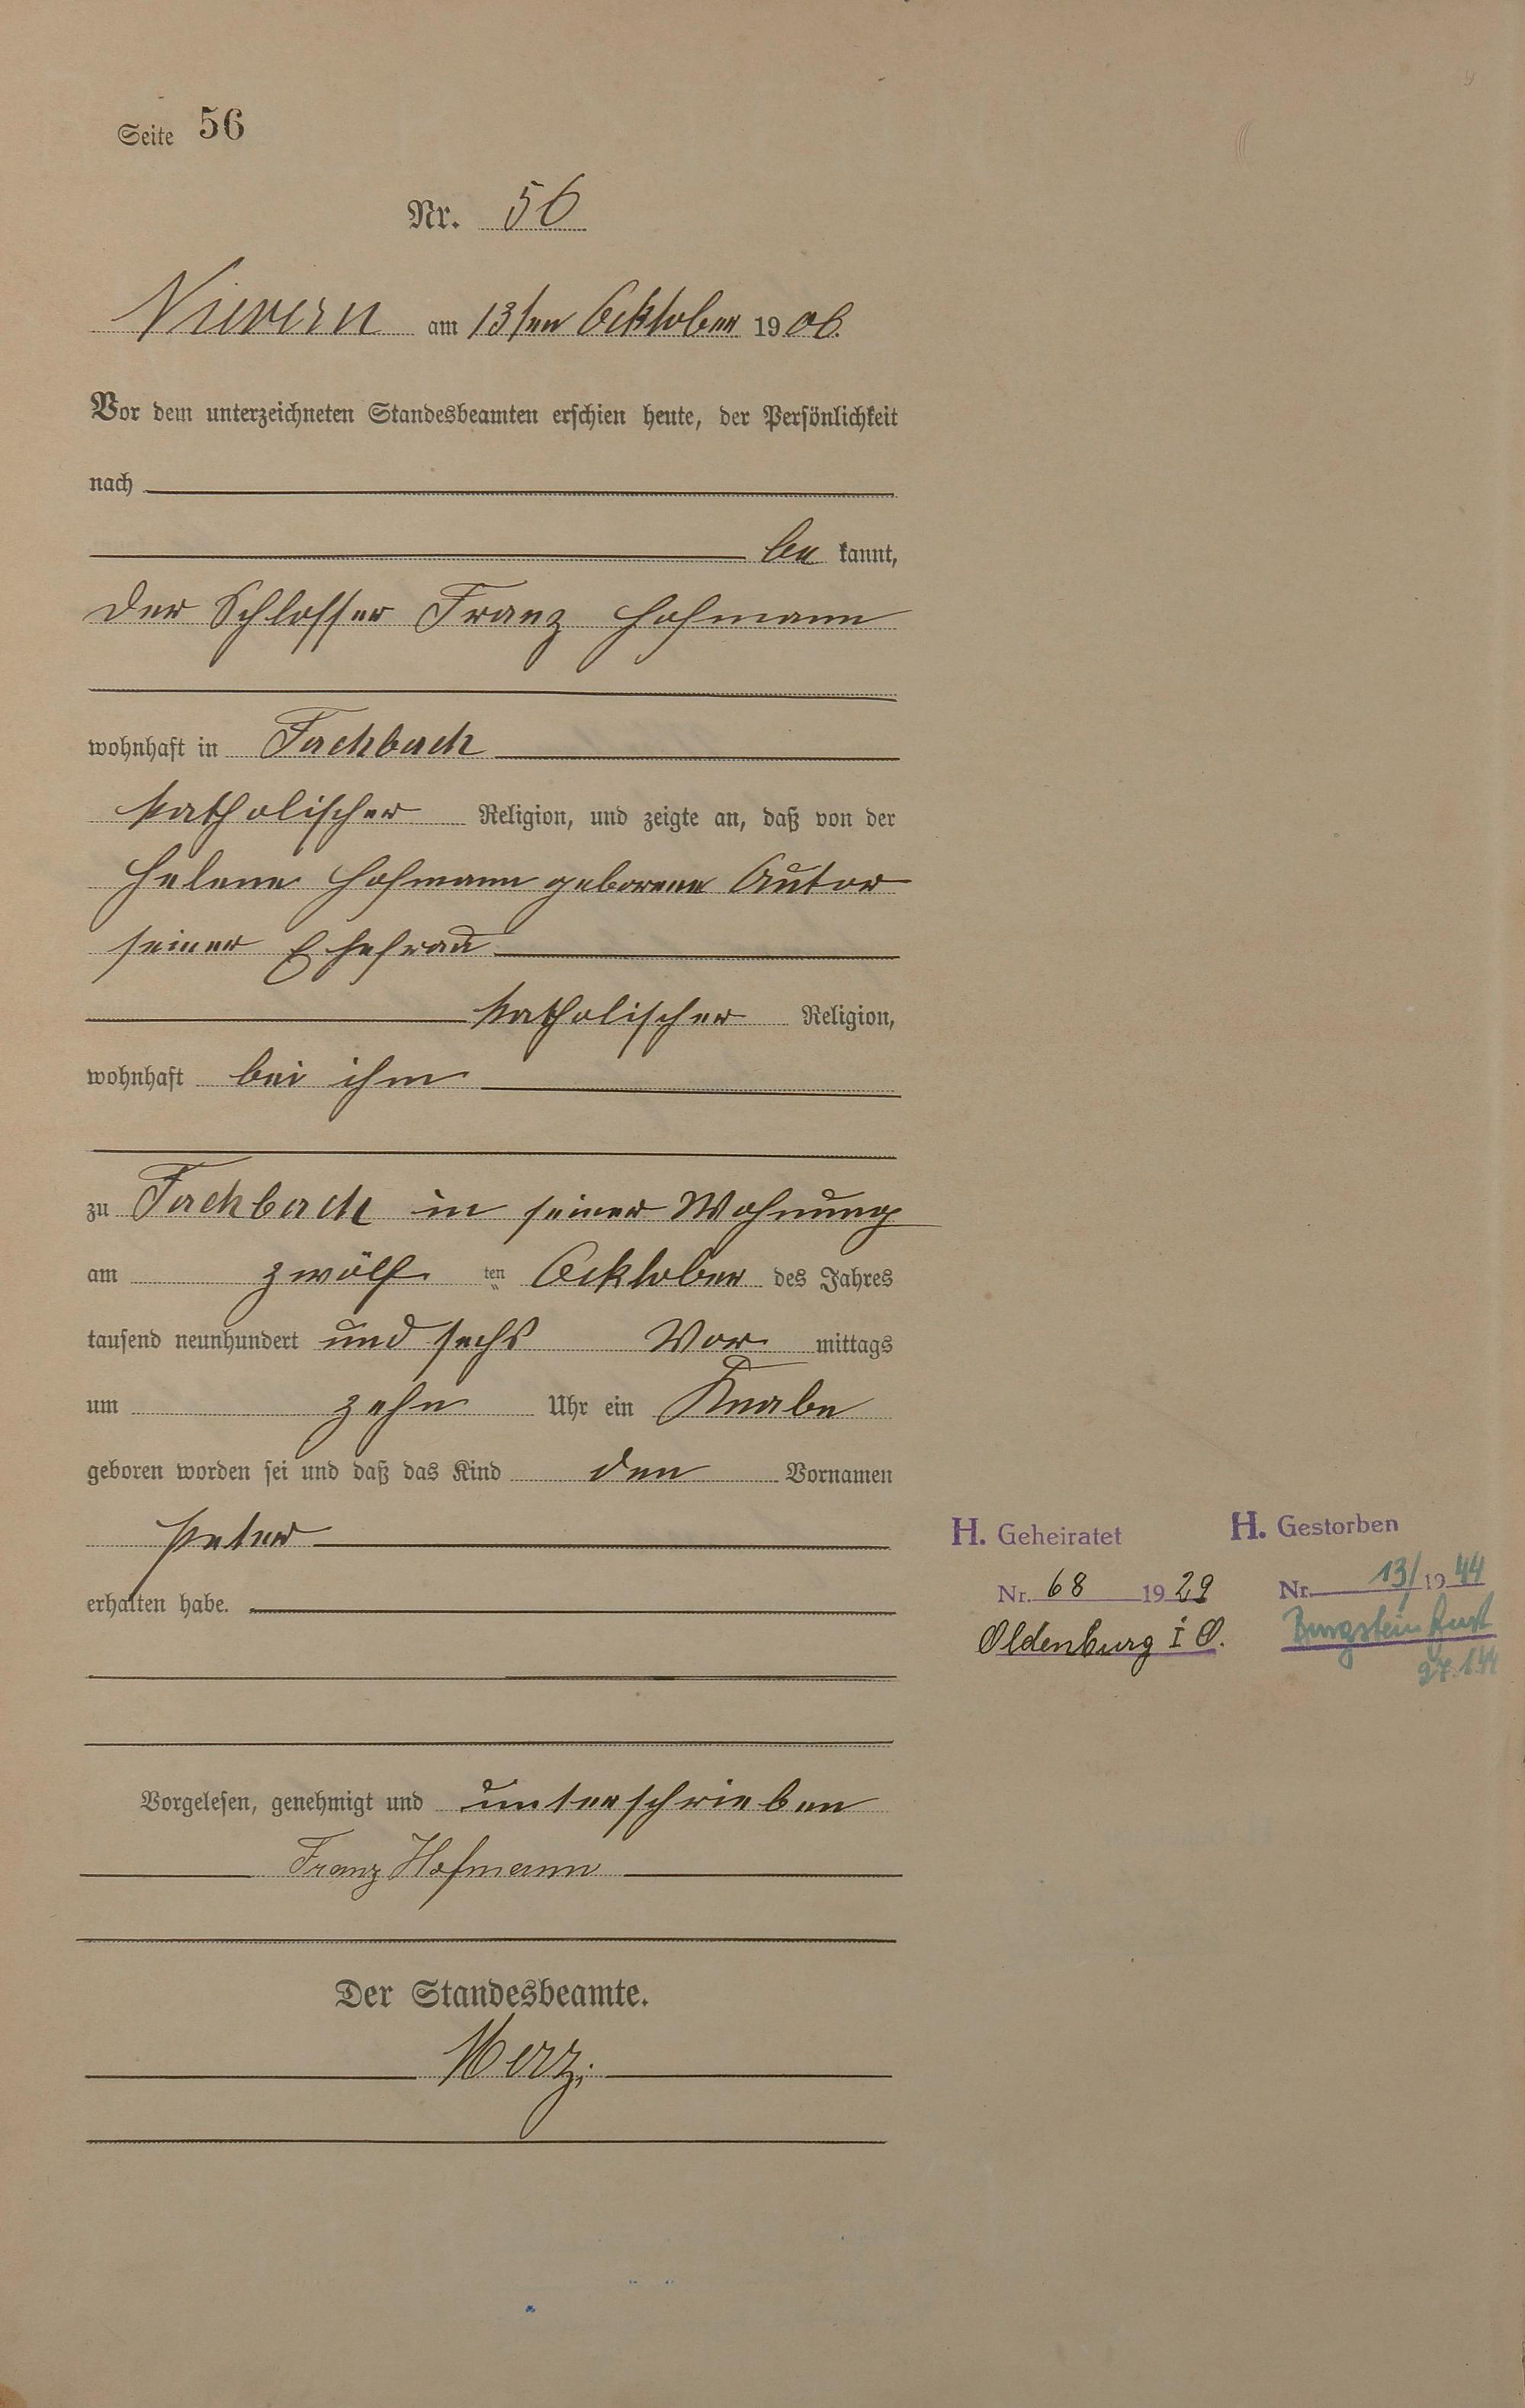 Seite 56
Nr. 56
Nievern am 13ten Ocktober 1906.
Vor dem unterzeichneten Standesbeamten erschien heute, der Persönlichkeit
nach
be kannt,
der Schlosser Franz Hofmann
wohnhaft in Fachbach
katholischer Religion, und zeigte an, daß von der
Helene Hofmann geborene Autor
seiner Ehefrau
katholischer Religion,
wohnhaft bei ihm
zu Fachbach in seiner Wohnung
am zwölf ten Ocktober des Jahres
tausend neunhundert und sechs Vor mittags
um zehn Uhr ein Knabe
geboren worden sei und daß das Kind den Vornamen
Peter
erhalten habe.
Vorgelesen, genehmigt und unterschrieben
Franz Hofmann
Der Standesbeamte.
Merz.
H. Geheiratet
Nr. 68 1929
Oldenburg i O.
H. Gestorben
Nr. 13/1944
Burgsteinfurt
27.1.44